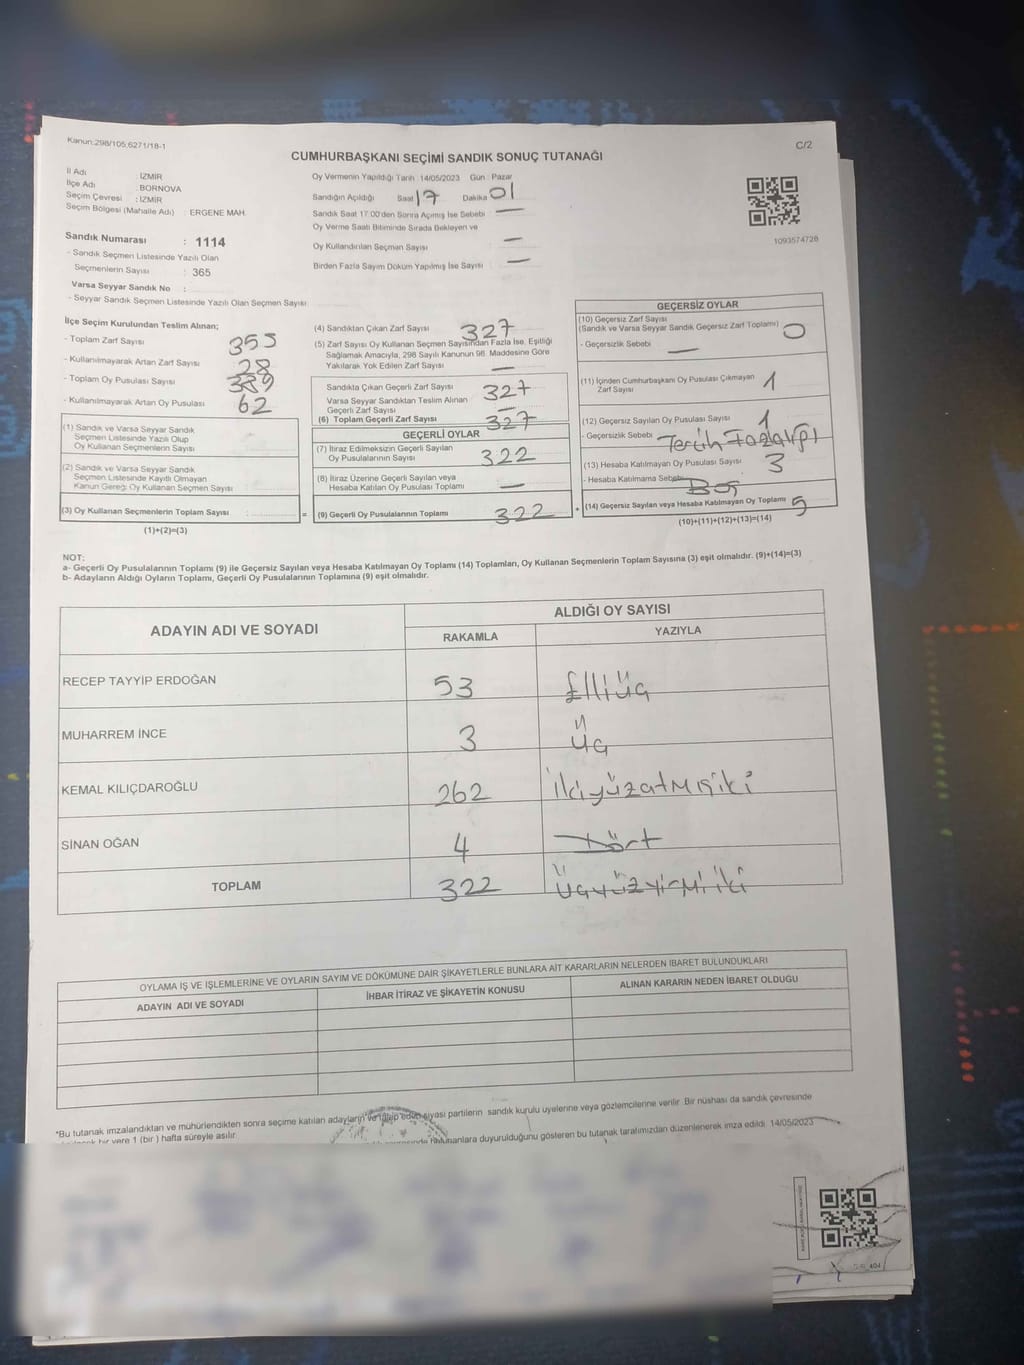 Kanun:298/105;6271/18-1
C/2
CUMHURBAŞKANI SEÇİMİ SANDIK SONUÇ TUTANAĞI
İl Adı : İZMİR
İlçe Adı : BORNOVA
Seçim Çevresi : İZMİR
Seçim Bölgesi (Mahalle Adı) : ERGENE MAH.
Sandık Numarası : 1114
- Sandık Seçmen Listesinde Yazılı Olan
Seçmenlerin Sayısı : 365
Varsa Seyyar Sandık No :
- Seyyar Sandık Seçmen Listesinde Yazılı Olan Seçmen Sayısı
Oy Vermenin Yapıldığı Tarih :14/05/2023 Gün : Pazar
Sandığın Açıldığı Saat 17 Dakika 01
Sandık Saat 17:00'den Sonra Açılmış İse Sebebi —
Oy Verme Saati Bitiminde Sırada Bekleyen ve
Oy Kullandırılan Seçmen Sayısı —
Birden Fazla Sayım Döküm Yapılmış İse Sayısı —
1093574728
İlçe Seçim Kurulundan Teslim Alınan;
- Toplam Zarf Sayısı 355
- Kullanılmayarak Artan Zarf Sayısı 28
- Toplam Oy Pusulası Sayısı 389
- Kullanılmayarak Artan Oy Pusulası 62
(1) Sandık ve Varsa Seyyar Sandık
Seçmen Listesinde Yazılı Olup
Oy Kullanan Seçmenlerin Sayısı
(2) Sandık ve Varsa Seyyar Sandık
Seçmen Listesinde Kayıtlı Olmayan
Kanun Gereği Oy Kullanan Seçmen Sayısı
(3) Oy Kullanan Seçmenlerin Toplam Sayısı :
(1)+(2)=(3)
(4) Sandıktan Çıkan Zarf Sayısı 327
(5) Zarf Sayısı Oy Kullanan Seçmen Sayısından Fazla İse, Eşitliği
Sağlamak Amacıyla, 298 Sayılı Kanunun 98. Maddesine Göre
Yakılarak Yok Edilen Zarf Sayısı —
Sandıkta Çıkan Geçerli Zarf Sayısı 327
Varsa Seyyar Sandıktan Teslim Alınan
Geçerli Zarf Sayısı —
(6) Toplam Geçerli Zarf Sayısı 327
GEÇERLİ OYLAR
(7) İtiraz Edilmeksizin Geçerli Sayılan
Oy Pusulalarının Sayısı 322
(8) İtiraz Üzerine Geçerli Sayılan veya
Hesaba Katılan Oy Pusulası Toplamı —
= (9) Geçerli Oy Pusulalarının Toplamı 322 +
GEÇERSİZ OYLAR
(10) Geçersiz Zarf Sayısı
(Sandık ve Varsa Seyyar Sandık Geçersiz Zarf Toplamı) 0
- Geçersizlik Sebebi —
(11) İçinden Cumhurbaşkanı Oy Pusulası Çıkmayan
Zarf Sayısı 1
(12) Geçersiz Sayılan Oy Pusulası Sayısı 1
- Geçersizlik Sebebi Tercih Fazla
(13) Hesaba Katılmayan Oy Pusulası Sayısı 3
- Hesaba Katılmama Sebebi Boş
(14) Geçersiz Sayılan veya Hesaba Katılmayan Oy Toplamı 5
(10)+(11)+(12)+(13)=(14)
NOT:
a- Geçerli Oy Pusulalarının Toplamı (9) ile Geçersiz Sayılan veya Hesaba Katılmayan Oy Toplamı (14) Toplamları, Oy Kullanan Seçmenlerin Toplam Sayısına (3) eşit olmalıdır. (9)+(14)=(3)
b- Adayların Aldığı Oyların Toplamı, Geçerli Oy Pusulalarının Toplamına (9) eşit olmalıdır.
ADAYIN ADI VE SOYADI
ALDIĞI OY SAYISI
RAKAMLA YAZIYLA
RECEP TAYYİP ERDOĞAN 53 Elliüç
MUHARREM İNCE 3 üç
KEMAL KILIÇDAROĞLU 262 ikiyüzatmışiki
SİNAN OĞAN 4 Dört
TOPLAM 322 üçyüzyirmiiki
OYLAMA İŞ VE İŞLEMLERİNE VE OYLARIN SAYIM VE DÖKÜMÜNE DAİR ŞİKAYETLERLE BUNLARA AİT KARARLARIN NELERDEN İBARET BULUNDUKLARI
ADAYIN ADI VE SOYADI
İHBAR İTİRAZ VE ŞİKAYETİN KONUSU
ALINAN KARARIN NEDEN İBARET OLDUĞU
*Bu tutanak imzalandıktan ve mühürlendikten sonra seçime katılan adayların ve talep eden siyasi partilerin sandık kurulu üyelerine veya gözlemcilerine verilir. Bir nüshası da sandık çevresinde
bir yere 1 (bir) hafta süreyle asılır.
bulunanlara duyurulduğunu gösteren bu tutanak tarafımızdan düzenlenerek imza edildi. 14/05/2023